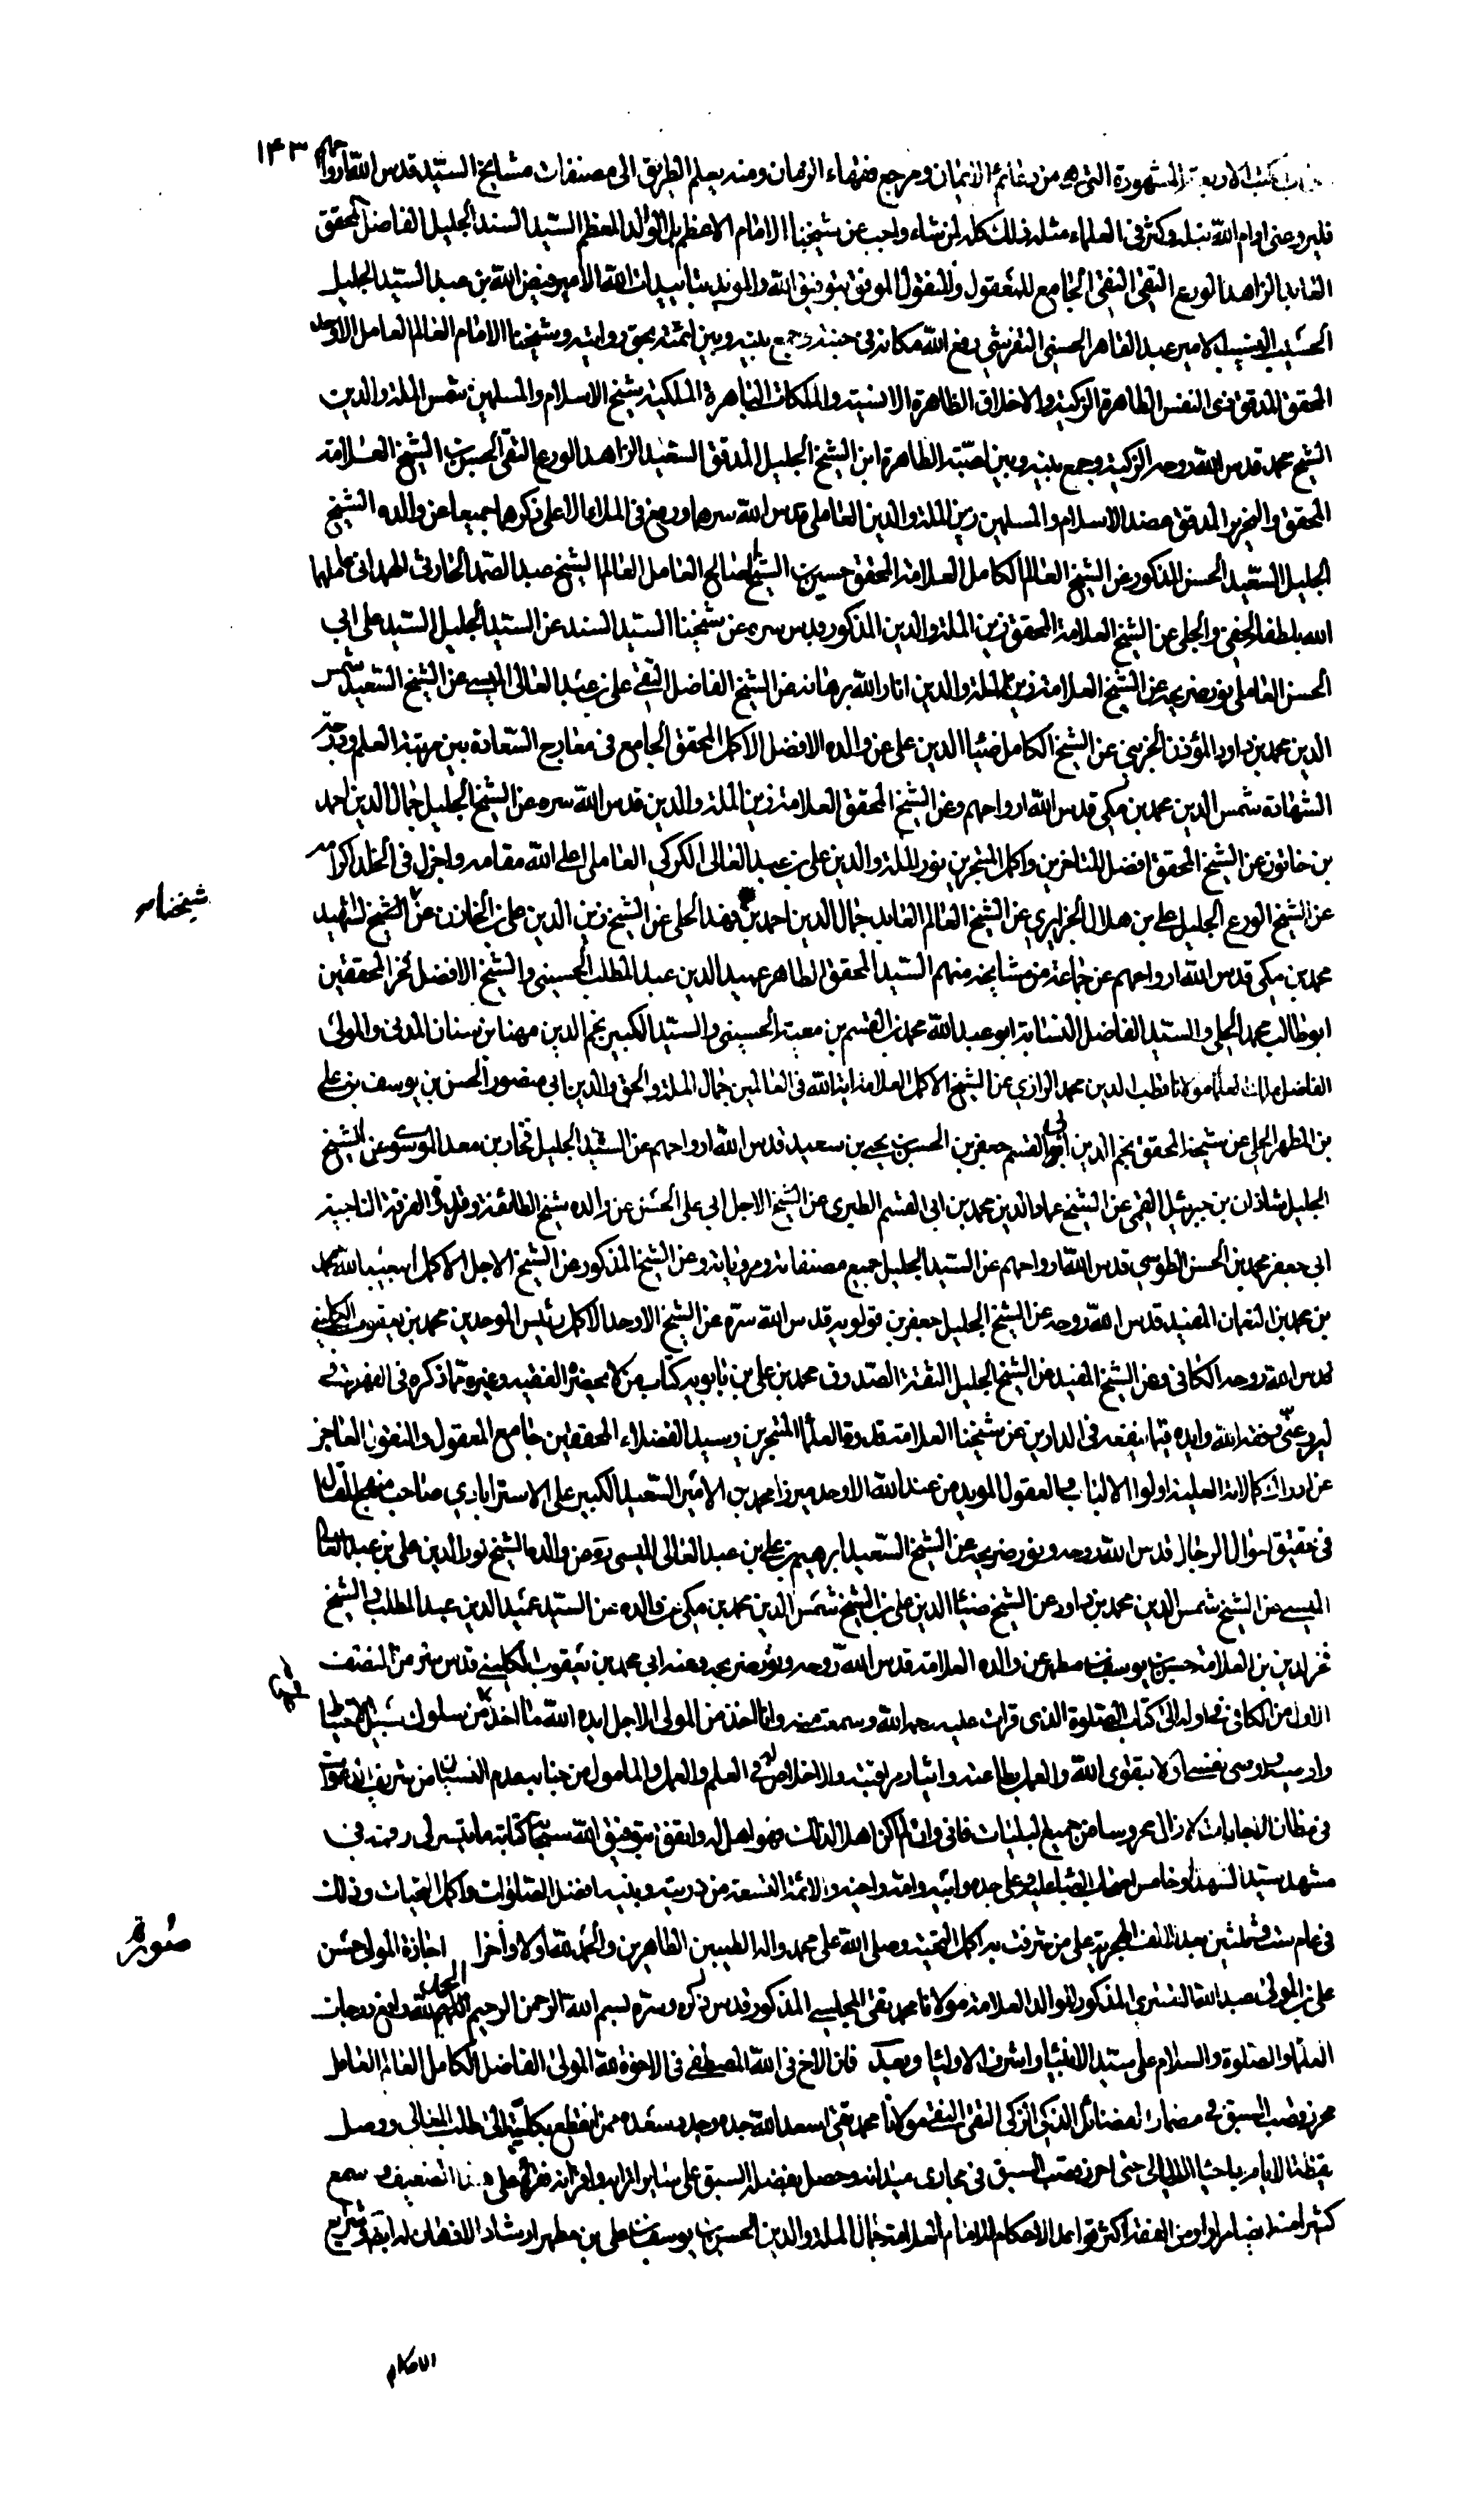 ١٤٣
الكتب الاربعة المشهورة التى هى من دعائم الايمان ومرجع فقهاء الزمان ومنه يعلم الطريق الى مصنفات مشايخ السيد قدس الله ارواحهم
فليرو عنى ادام الله نبله وكثر فى العلماء مثله ذلك كله لمن شاء واحب عن شيخنا الامام الاعظم بل الوالد المعظم السيد السند الجليل الفاضل المحقق
العابد الزاهد الورع التقى النقى الجامع للمعقول والمنقول الموفق بتوفيق الله والمويد بتاييدات الله الامير فيض الله بن عبد السيد الجليل
الحسيب النسيب الامير عبد القاهر الحسينى التفرشى رفع الله مكانه فى جنته وجمع بينه وبين ائمته بحق روايته وشيخنا الامام العالم العامل الاوحد
المحقق المدقق ذى النفس الطاهرة الزكية والاخلاق الظاهرة الانسية والملكات الباهرة الملكية شيخ الاسلام والمسلمين شمس الملة والدين
الشيخ محمد قدس الله روحه الزكية وجمع بينه وبين احبته الطاهرة ابن الشيخ الجليل المدقق السعيد الزاهد الورع التقى الحسن بن الشيخ العلامة
المحقق والنحرير المدقق عضد الاسلام والمسلمين زين الملة والدين العاملى قدس الله سرهما ورفع فى الملاء الاعلى ذكرهما جميعا عن والده الشيخ
الجليل السعيد الحسن المذكور عن الشيخ العالم الكامل العلامة المحقق حسين بن الشيخ الصالح العامل العالم الشيخ عبد الصمد الحارثى الهمدانى عاملهما
الله بلطفه الخفى والجلى عن الشيخ العلامة المحقق زين الملة والدين المذكور قدس سره عن شيخنا السيد السند عن السيد الجليل السيد على ابى
الحسن العاملى نور ضريحه عن الشيخ العلامة زين الملة والدين انار الله برهانه عن الشيخ الفاضل التقى على بن عبد العالى الميسى عن الشيخ السعيد شمس
الدين محمد بن داود المؤذن الجزينى عن الشيخ الكامل ضياء الدين على عن والده الافضل الاكمل المحقق الجامع فى معارج السعادة بين مرتبة العلم ودرجة
الشهادة شمس الدين محمد بن مكى قدس الله ارواحهم وعن الشيخ المحقق العلامة زين الملة والدين قدس الله سره عن الشيخ الجليل جمال الدين احمد
بن خاتون عن الشيخ المحقق افضل المتاخرين واكمل المتبحرين نور الملة والدين على بن عبد العالى الكركى العاملى اعلى الله مقامه واجزل فى الخلد اكرامه
عن الشيخ الورع الجليل على بن هلال الجزايرى عن الشيخ العالم العابد جمال الدين احمد بن فهد الحلى عن الشيخ زين الدين على بن الخازن عن الشيخ الشهيد
شيخناء
محمد بن مكى قدس الله ارواحهم عن جماعة من مشايخه منهم السيد المحقق الطاهر عميد الدين عبد المطلب الحسينى والشيخ الافضل فخر المحققين
ابو طالب محمد الحلى والسيد الفاضل النسابة ابو عبد الله محمد بن القسم بن معية الحسينى والسيد الكبير نجم الدين مهنا بن سنان المدنى والمولى
الفاضل ملك العلماء مولانا قطب الدين محمد الرازى عن الشيخ الاكمل العلامة اية الله فى العالمين جمال الملة والحق والدين ابى منصور الحسن بن يوسف بن على
بن المطهر الحلى عن شيخنا المحقق نجم الدين ابى القسم جعفر بن الحسن بن يحيى بن سعيد قدس الله ارواحهم عن السيد الجليل فخار بن معد الموسوى عن الشيخ
الجليل شاذان بن جبرئيل القمى عن الشيخ عماد الدين محمد بن ابى القسم الطبرى عن الشيخ الاجل ابى على الحسن عن والده شيخ الطائفة وقدوة الفرقة الناجية
ابى جعفر محمد بن الحسن الطوسى قدس الله ارواحهم عن السيد الجليل جميع مصنفاته ومروياته وعن الشيخ المذكور عن الشيخ الاجل الاكمل ابى عبد الله محمد
بن محمد بن النعمان المفيد قدس الله روحه عن الشيخ الجليل جعفر بن قولويه قدس الله سره عن الشيخ الاوحد الاكمل رئيس الموحدين محمد بن يعقوب الكلينى
قدس الله روحه الكافى وعن الشيخ المفيد عن الشيخ الجليل الثقة الصدوق محمد بن على بن بابويه كتاب من لا يحضره الفقيه وغيره مما ذكره فى الفهرست
ليرو عنى وفقه الله وايده فيما ينفعه فى الدارين عن شيخنا العلامة قدوة العلماء المتبحرين وسيد الفضلاء المحققين جامع المعقول والمنقول العاجز
عن ادراك كمالاته العلية اولوا الالباب والعقول المويد من عند الله الاوحد ميرزا محمد بن الامير السعيد الكبير على الاسترابادى صاحب منهج المقال
فى تحقيق احوال الرجال قدس الله روحه ونور ضريحه عن الشيخ السعيد ابرهيم بن على بن عبد العالى الميسى وعن والده الشيخ نور الدين على بن عبد العالى
الميسى عن الشيخ شمس الدين محمد بن داود عن الشيخ ضياء الدين على بن الشيخ شمس الدين محمد بن مكى عن والده عن السيد عميد الدين عبد المطلب والشيخ
فخر الدين بن العلامة حسن بن يوسف بن مطهر عن والده العلامة قدس الله روحه ونور ضريحه وعنه ابى محمد بن يعقوب الكلينى قدس سره من النصف
الاول من الكافى من اوله الى كتاب الصلوة الذى قرات عليه رحمه الله وسمعت منه وانا اخذ من المولى الاجل ايده الله ما اخذ من سلوك سبيل الاحتياط
واوصيه واوصى نفسى اولا بتقوى الله والعمل بطاعته واتيان مراقبته والاخلاص له فى العلم والعمل والمامول من جنابه عدم النسيان من شريف الدعوات
فى مظان الاجابات لا زال محروسا من جميع البليات فانى وان لم اكن اهلا لذلك فهو اهل له واتفق بتوفيق الله سبحانه كتابة ما تيسر لى رقمه فى
مشهد سيد الشهداء وخامس اصحاب العباء عليه وعلى جده وابيه وامه واخيه والائمة التسعة من ذريته وبنيه افضل الصلوات واكمل التحيات وذلك
فى عام ست وثلثين بعد الالف الهجرية على من شرفت به اكمل التحية وصلى الله على محمد واله الطيبين الطاهرين والحمد لله اولا واخرا اجازة المولى حسن
صورة
على بن المولى عبد الله التسترى المذكور للوالد العلامة مولانا محمد تقى المجلسى المذكور قدس الله ذكره وسره بسم الله الرحمن الرحيم الحمد لله رافع درجات
العلماء والصلوة والسلام على سيد الانبياء واشرف الاولياء وبعد فان الاخ فى الله المصطفى فى الاخوة لله المولى الفاضل الكامل العالم العامل
محرز قصب السبق فى مضمار الفضائل الذكى الزكى التقى النقى مولانا محمد تقى اسعد الله جده وجدد سعده ممن انقطع بكليته الى طلب المعالى ووصل
يقظة الايام باحياء الليالى حتى احرز قصب السبق فى مجارى ميدانه وحصل بفضله السبق على سائر اترابه واقرانه قرا على الضعيف وسمع
كثيرا من الفقه اكثر قواعد الاحكام للامام العلامة جمال الملة والدين الحسن بن يوسف بن على بن مطهر ارشاد الاذهان له شرايع
الاحكام